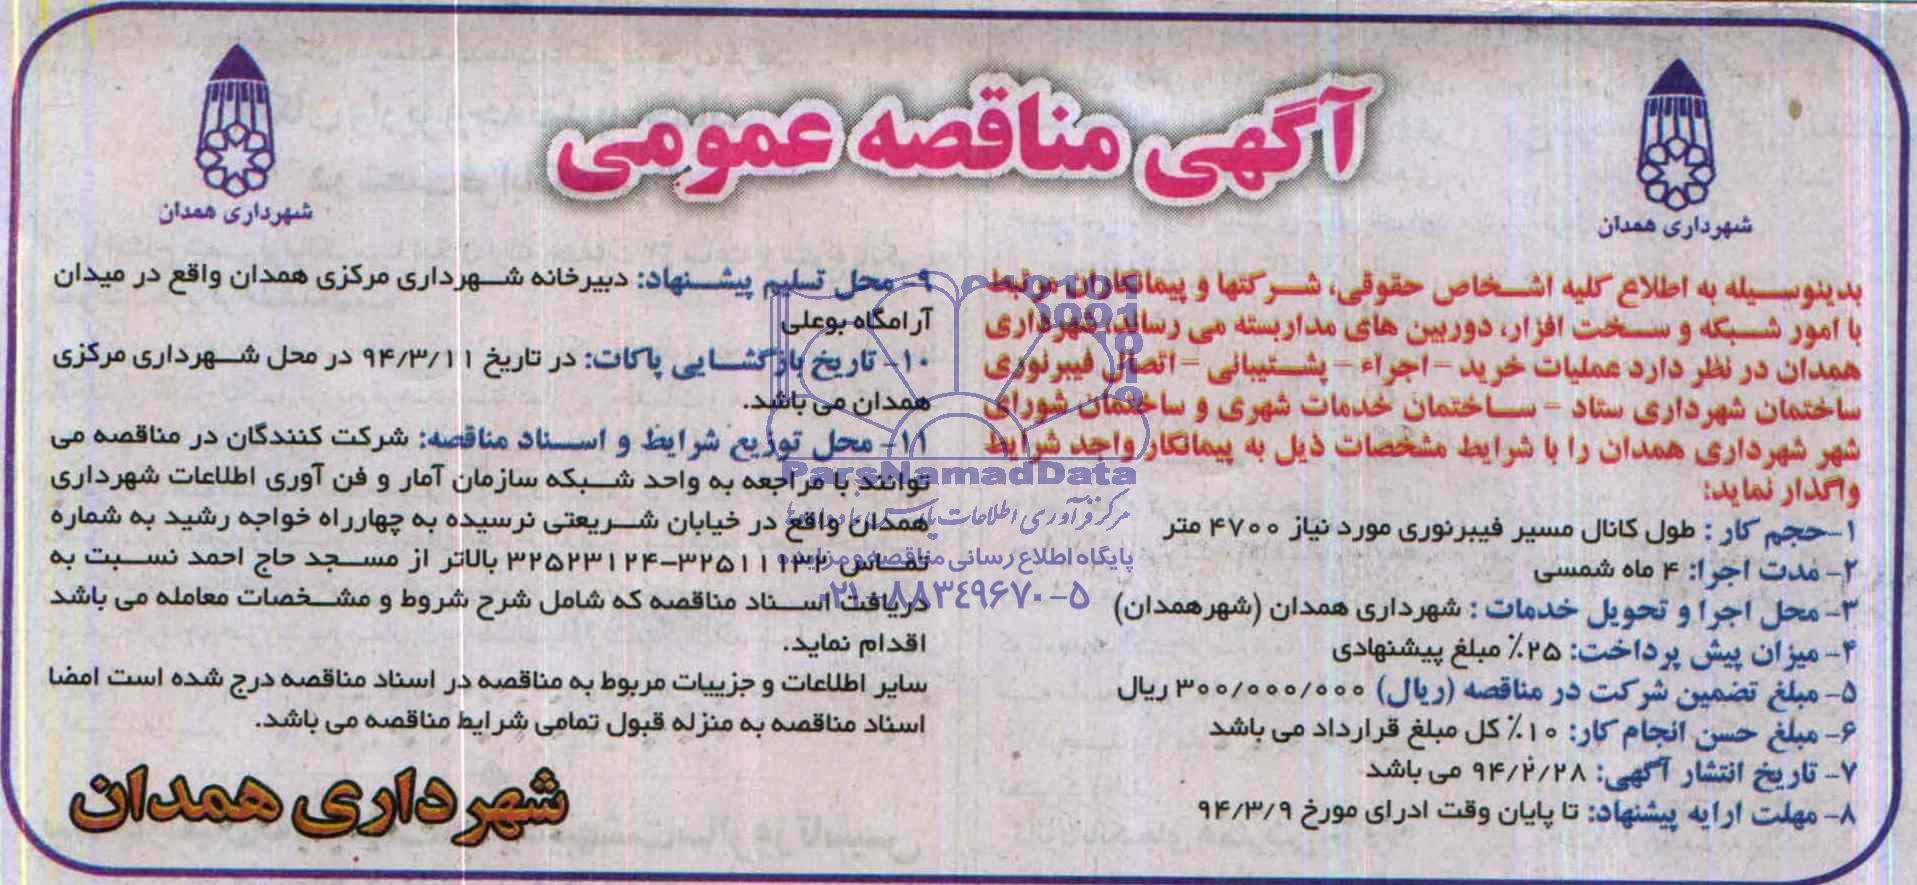 آگهی مناقصه عمومی
شهرداری همدان
شهرداری همدان
بدینوسیله به اطلاع کلیه اشخاص حقوقی، شرکتها و پیمانکاران مرتبط
با امور شبکه و سخت افزار، دوربین های مداربسته می رساند، شهرداری
همدان در نظر دارد عملیات خرید -اجراء - پشتیبانی -اتصال فیبرنوری
ساختمان شهرداری ستاد - ساختمان خدمات شهری و ساختمان شورای
شهر شهرداری همدان را با شرایط مشخصات ذیل به پیمانکار واجد شرایط
واگذار نماید:
۱-حجم کار : طول کانال مسیر فیبرنوری مورد نیاز ۴۷۰۰ متر
۲- مدت اجرا: ۴ ماه شمسی
۳- محل اجرا و تحویل خدمات : شهرداری همدان (شهرهمدان)
۴- میزان پیش پرداخت: ۲۵٪ مبلغ پیشنهادی
۵- مبلغ تضمین شرکت در مناقصه (ریال) ۳۰۰/۰۰۰/۰۰۰ ریال
۶- مبلغ حسن انجام کار: ۱۰٪ کل مبلغ قرارداد می باشد
۷- تاریخ انتشار آگهی: ۹۴/۲/۲۸ می باشد
۸- مهلت ارایه پیشنهاد: تا پایان وقت ادرای مورخ ۹۴/۳/۹
۹- محل تسلیم پیشنهاد: دبیرخانه شهرداری مرکزی همدان واقع در میدان
آرامگاه بوعلی
۱۰- تاریخ بازگشایی پاکات: در تاریخ ۹۴/۳/۱۱ در محل شهرداری مرکزی
همدان می باشد.
۱۱- محل توزیع شرایط و اسناد مناقصه: شرکت کنندگان در مناقصه می
توانند با مراجعه به واحد شبکه سازمان آمار و فن آوری اطلاعات شهرداری
همدان واقع در خیابان شریعتی نرسیده به چهارراه خواجه رشید به شماره
تماس ۳۲۵۱۱۱۳۲-۳۲۵۲۳۱۲۴ بالاتر از مسجد حاج احمد نسبت به
دریافت اسناد مناقصه که شامل شرح شروط و مشخصات معامله می باشد
اقدام نماید.
سایر اطلاعات و جزییات مربوط به مناقصه در اسناد مناقصه درج شده است امضا
اسناد مناقصه به منزله قبول تمامی شرایط مناقصه می باشد.
شهرداری همدان
ParsNamadData
مرکز فرآوری اطلاعات پارس نماد داده ها
پایگاه اطلاع رسانی مناقصه و مزایده
۰۲۱-۸۸۳۴۹۶۷۰-۵